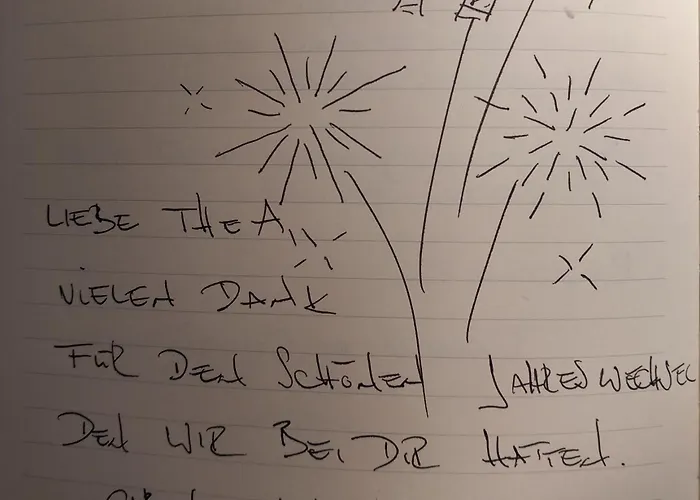 LIEBE THEA,
VIELEN DANK
FÜR DEN SCHÖNEN JAHRESWECHSEL
DEN WIR BEI DIR HATTEN.